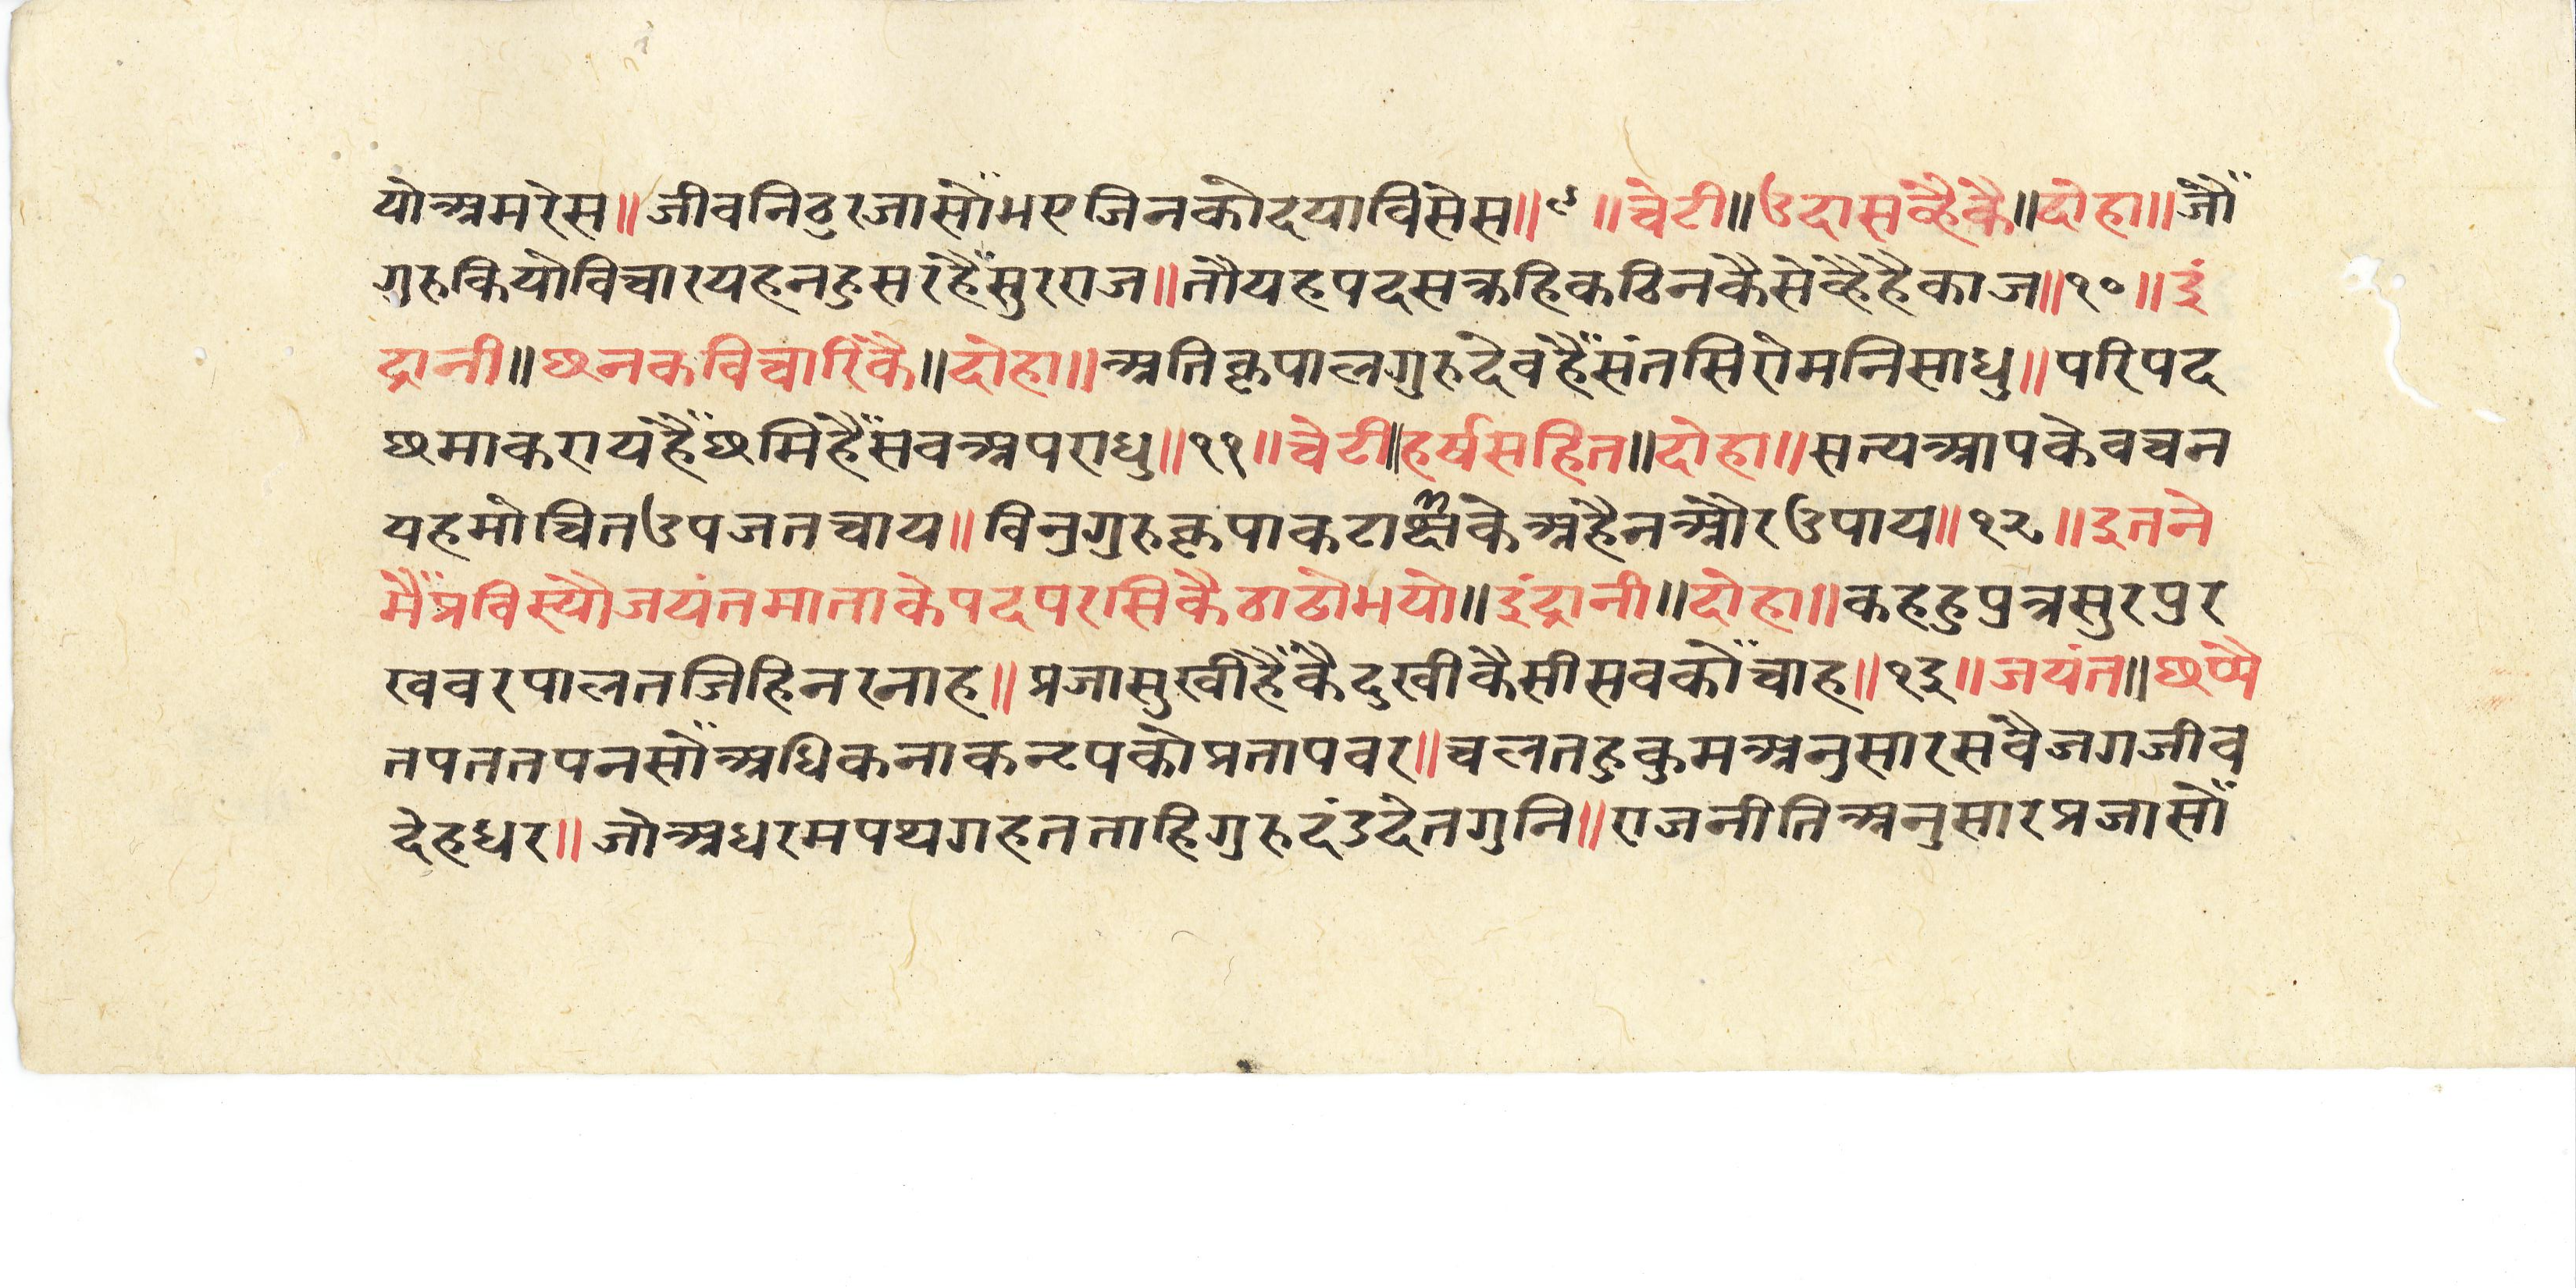 योअमरेस॥जीवनिठुरजासोंभएजिनकोदयाविसेस॥९॥चेटी॥उदासव्हैकै॥दोहा॥जौं
गुरुकियोविचारयहनहुसरहैंसुरराज॥तौयहपदसक्रहिकठिनकैसेव्हैहैकाज॥१०॥इं
द्रानी॥छनकविचारिकै॥दोहा॥अतिकृपालगुरुदेवहैंसंतसिरोमनिसाधु॥परिपद
छमाकरायहैंछमिहैंसवअपराधु॥११॥चेटी॥हर्षसहित॥दोहा॥सत्यआपकेवचन
यहमोचितउपजतचाय॥विनुगुरुकृपाकटाक्षकेअहैनऔरउपाय॥१२॥इतने
मैंप्रविस्यौजयंतमाताकेपदपरसिकैठाढोभयो॥इंद्रानी॥दोहा॥कहहुपुत्रसुरपुर
खवरपालतजिहिनरनाह॥प्रजासुखीहैंकैदुखीकैसीसवकोंचाह॥१३॥जयंत॥छप्पै
तपततपनसोंअधिकनाकन्टपकोप्रतापवर॥चलतहुकुमअनुसारसवैजगजीव
देहधर॥जोअधरमपथगहतताहिगुरुदंडदेतगुनि॥राजनीतिअनुसारप्रजासों